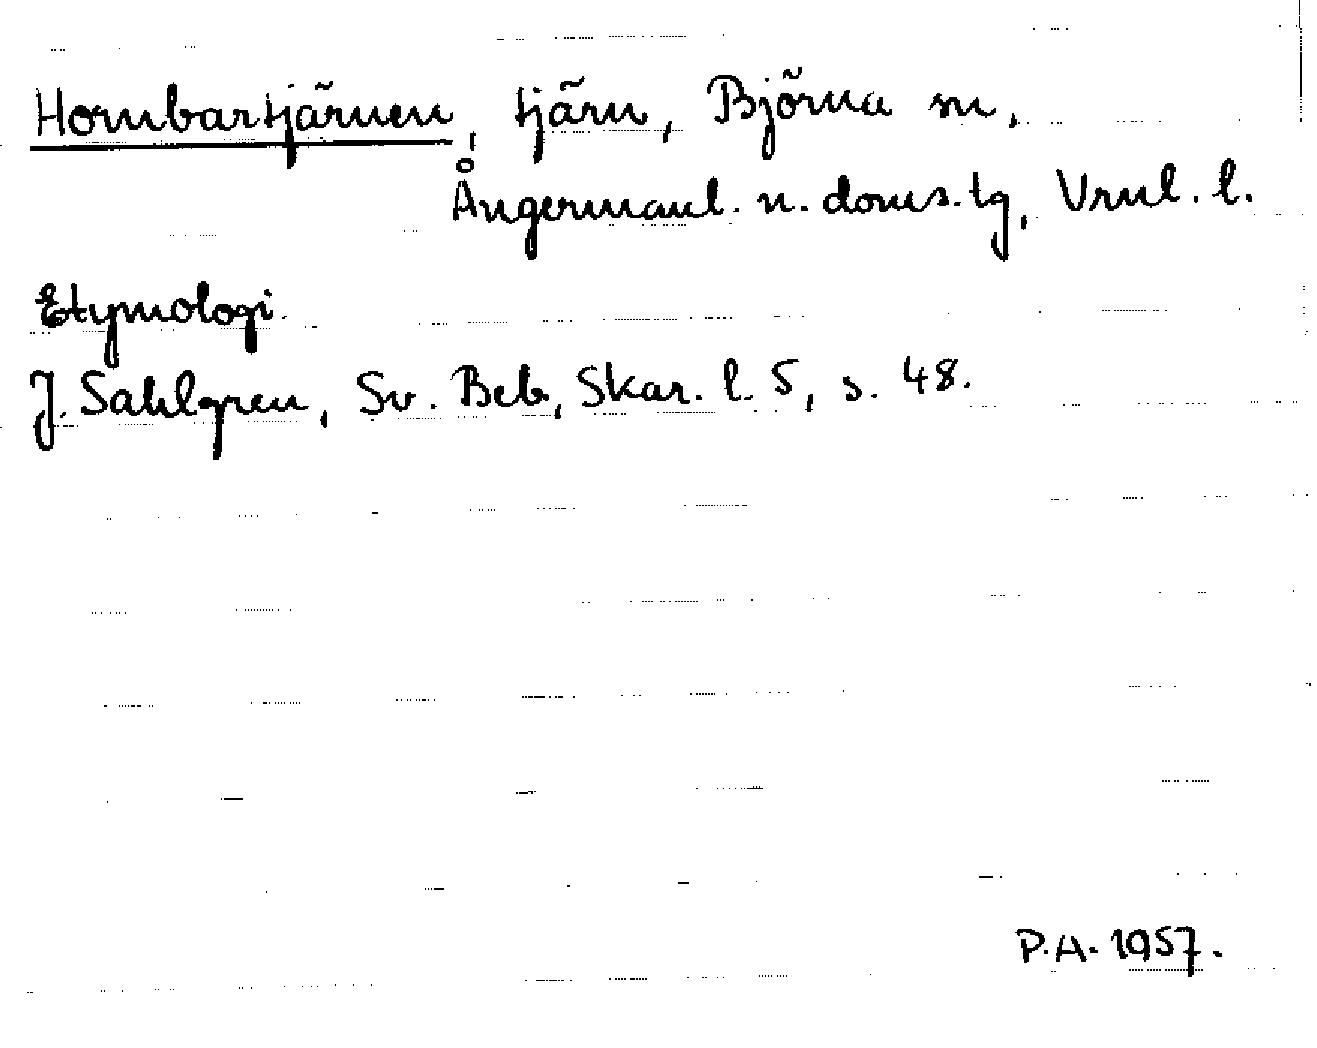 Hornbartjärnen, tjärn, Björna sn,
Ångermanl. n. doms.tg, Vrnl. l.
Etymologi.
J. Sahlgren, Sv. Beb, Skar. l. 5, s. 48.
P.A. 1957.